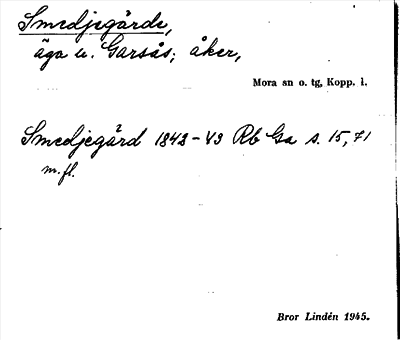 Smedjegårde,
äga u. Garsås; åker,
Mora sn o. tg, Kopp. l.
Smedjegård 1842-43 Rb Ga s. 15, 71
m.fl.
Bror Lindén 1945.